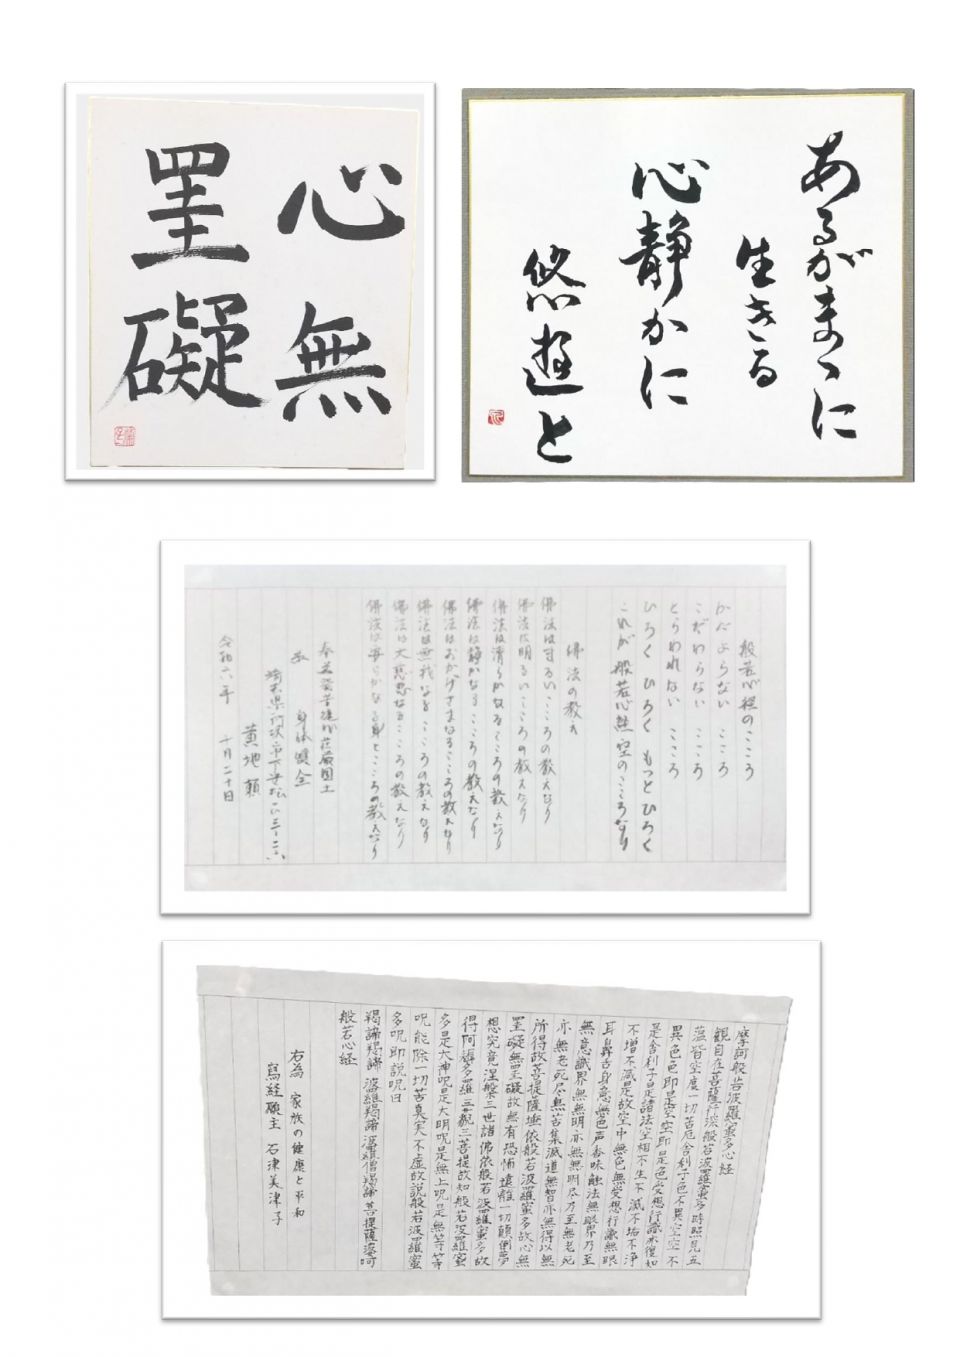 心無
罣礙
あるがまゝに
生きる
心静かに
悠遊と
般若心経のこころ
かたよらない こころ
こだわらない こころ
とらわれない こころ
ひろく ひろく もっと ひろく
これが 般若心経 空のこころなり
佛法の教え
佛法はまるいこころの教えなり
佛法は明るいこころの教えなり
佛法は清らかなるこころの教えなり
佛法は静かなるこころの教えなり
佛法はおかげさまなるこころの教えなり
佛法は無我なるこころの教えなり
佛法は大慈悲なるこころの教えなり
佛法は安らかなる身とこころの教えなり
身体健全
埼玉県所沢市下安松
黄地 頼
令和六年 十月二十日
摩訶般若波羅蜜多心経
観自在菩薩行深般若波羅蜜多時照見五
蘊皆空度一切苦厄舎利子色不異空空不
異色色即是空空即是色受想行識亦復如
是舎利子是諸法空相不生不滅不垢不浄
不増不減是故空中無色無受想行識無眼
耳鼻舌身意無色声香味触法無眼界乃至
無意識界無無明亦無無明尽乃至無老死
亦無老死尽無苦集滅道無智亦無得以無
所得故菩提薩埵依般若波羅蜜多故心無
罣礙無罣礙故無有恐怖遠離一切顛倒夢
想究竟涅槃三世諸佛依般若波羅蜜多故
得阿耨多羅三藐三菩提故知般若波羅蜜
多是大神呪是大明呪是無上呪是無等等
呪能除一切苦真実不虚故説般若波羅蜜
多呪即説呪曰
羯諦羯諦 波羅羯諦 波羅僧羯諦 菩提薩婆訶
般若心経
右為 家族の健康と平和
写経願主 石津美津子